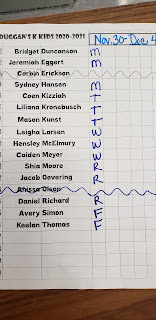 DUGGAN'S K KIDS 2020-2021 Nov. 30-Dec 4
Bridget Duncanson M
Jeremiah Eggert M
Corbin Erickson
Sydney Hansen M
Coen Kizziah T
Liliana Kronebusch T
Mason Kunst T
Leigha Larsen W
Hensley McElmury W
Caiden Meyer W
Shia Moore R
Jacob Oevering R
Anissa Olson
Daniel Richard R
Avery Simon F
Keelan Thomas F